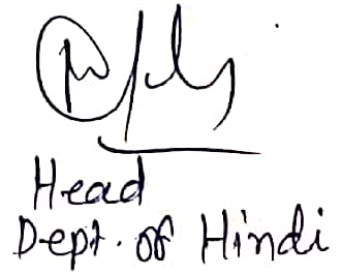 Head
Dept. of Hindi